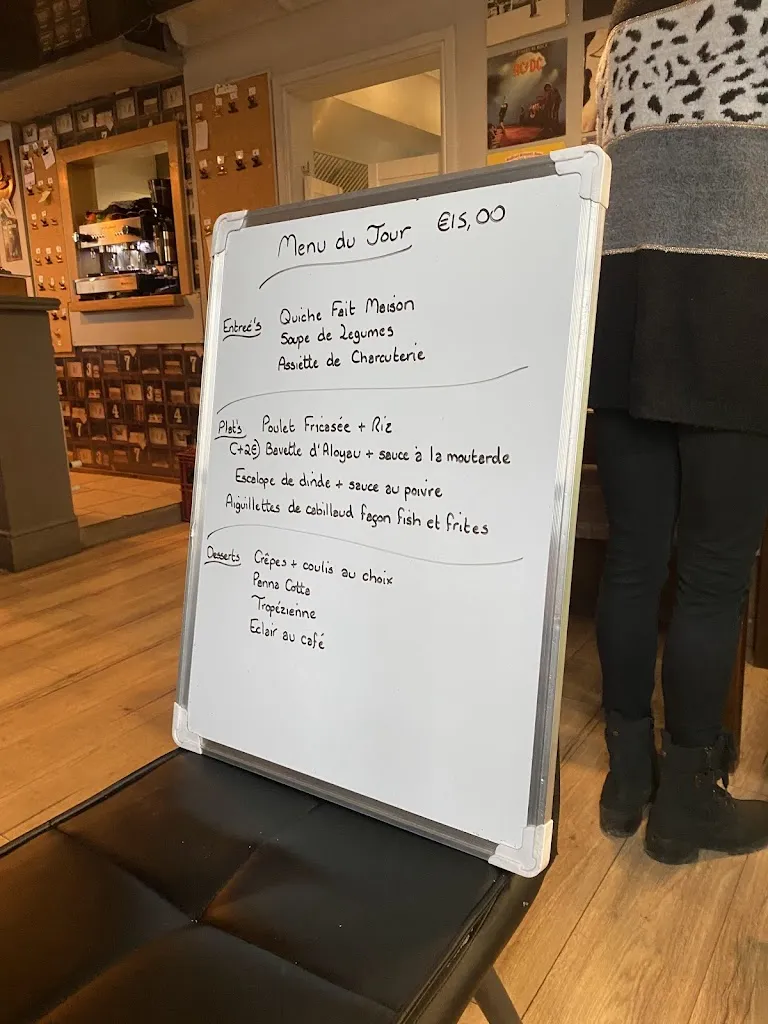 AC/DC
Menu du Jour €15,00
Entreé's Quiche Fait Maison
Soupe de Legumes
Assiette de Charcuterie
Plat's Poulet Fricasée + Riz
(+2€) Bavette d'Aloyau + sauce à la moutarde
Escalope de dinde + sauce au poivre
Aiguillettes de cabillaud façon fish et frites
Desserts Crêpes + coulis au choix
Panna Cotta
Tropézienne
Eclair au café